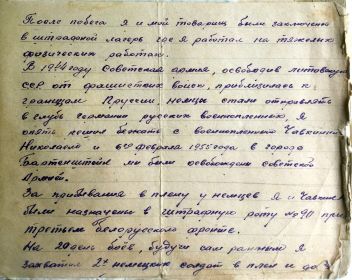 После побега я и мой товарищ были заключены
в штрафной лагерь где я работал на тяжелых
физических работах.
В 1944 году Советская армия, освободив литовскую
ССР от фашистских войск, приблизилась к
границам Пруссии немцы стали отправлять
в глубь германии русских военнопленных, я
опять решил бежать с военнопленным Чавкиным
Николаем и 6го февраля 1955 года в городе
Бартенштейн мы были освобождены советской
Армией.
За пребывания в плену у немцев я и Чавкин
были назначены в штрафную роту №90 при
третьем белорусском фронте.
На 20 день боёв, будучи сам раненым я
захватил 2х немецких солдат в плен и до